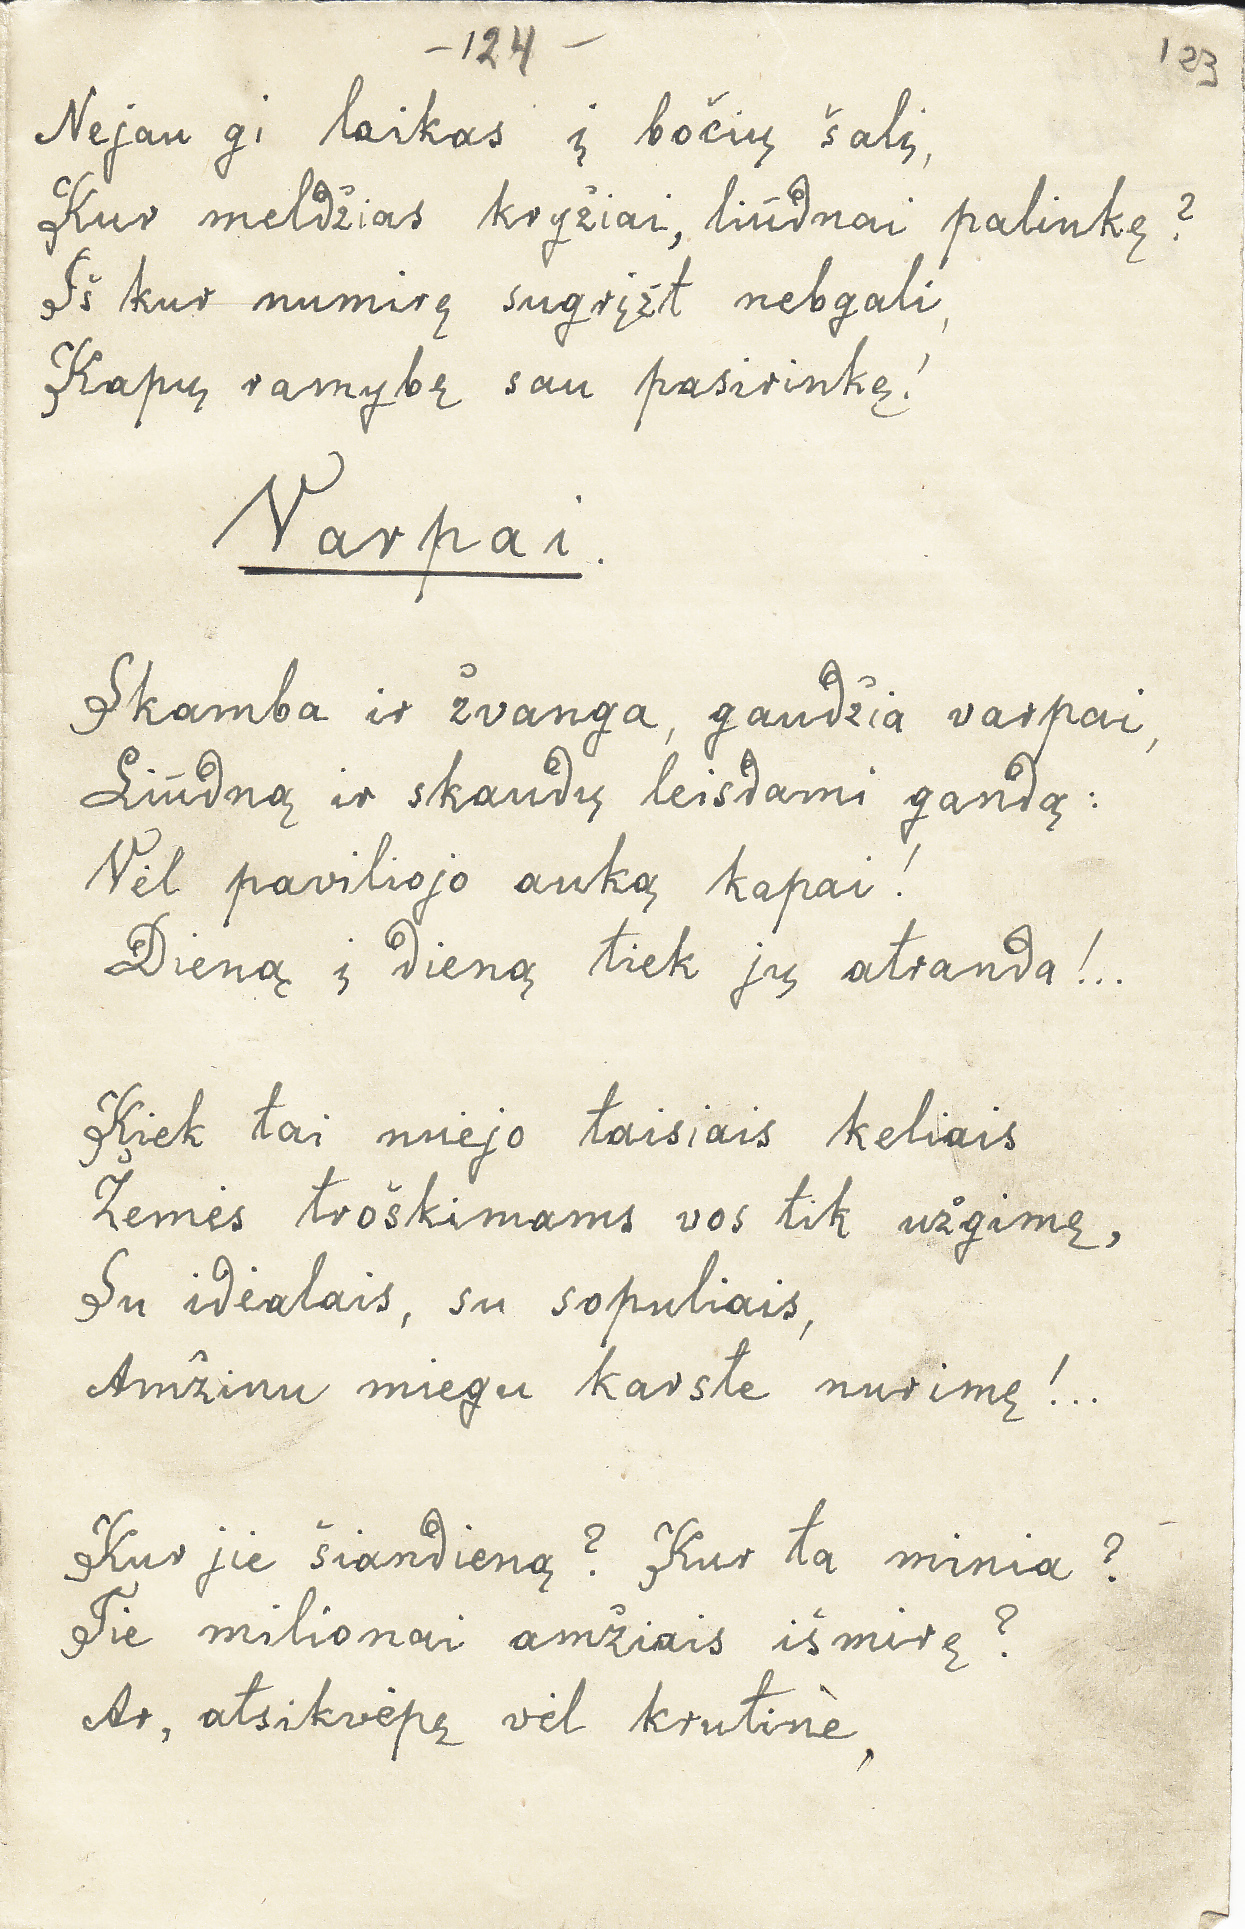 -124-
123
Nejau gi laikas į bočių šalį,
Kur meldžias kryžiai, liūdnai palinkę?
Iš kur numirę sugrįžt nebgali,
Kapų ramybę sau pasirinkę!
Varpai.
Skamba ir žvanga, gaudžia varpai,
Liūdną ir skaudų leisdami gandą:
Vėl paviliojo auką kapai!
Dieną į dieną tiek jų atranda!..
Kiek tai nuėjo taisiais keliais
Žemės troškimams vos tik užgimę,
Su idėalais, su sopuliais,
Amžinu miegu karste nurimę!..
Kur jie šiandieną? Kur ta minia?
Tie milionai amžiais išmirę?
Ar, atsikvėpę vėl krutinė,